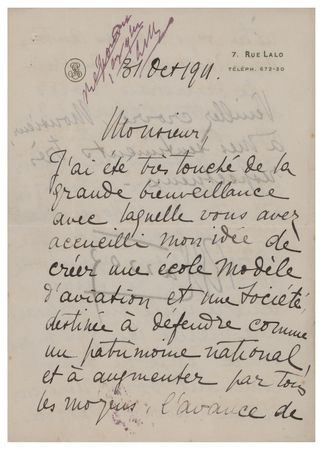 7. RUE LALO
TÉLÉPH. 672-20
31 Oct 1911.
Monsieur,
J'ai été très touché de la
grande bienveillance
avec laquelle vous avez
accueilli mon idée de
créer une école modèle
d'aviation et une Société
destinée à défendre comme
un patrimoine national,
et à augmenter par tous
les moyens, l'avance de